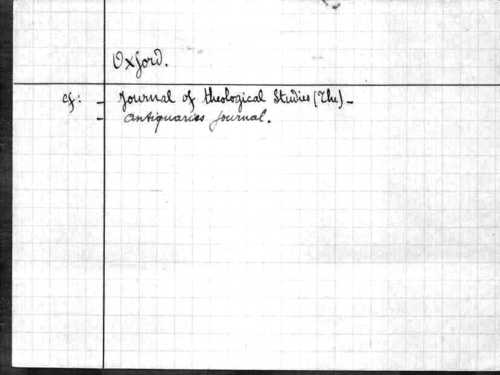 Oxford.
cf: - Journal of theological Studies (The) -
- Antiquaries Journal.